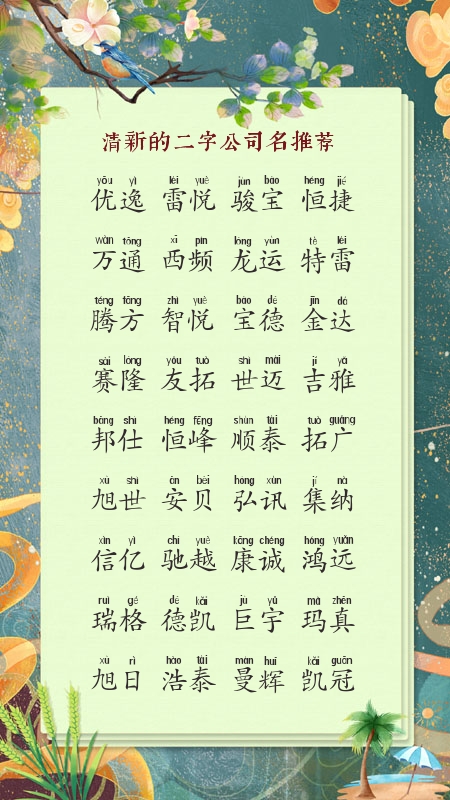 清新的二字公司名推荐
yōu yì léi yuè jùn bǎo héng jié
优逸 雷悦 骏宝 恒捷
wàn tōng xī pín lóng yùn tè léi
万通 西频 龙运 特雷
téng fāng zhì yuè bǎo dé jīn dá
腾方 智悦 宝德 金达
sài lóng yǒu tuò shì mài jí yǎ
赛隆 友拓 世迈 吉雅
bāng shì héng fēng shùn tài tuò guǎng
邦仕 恒峰 顺泰 拓广
xù shì ān bèi hóng xùn jí nà
旭世 安贝 弘讯 集纳
xìn yì chí yuè kāng chéng hóng yuǎn
信亿 驰越 康诚 鸿远
ruì gé dé kǎi jù yǔ mǎ zhēn
瑞格 德凯 巨宇 玛真
xù rì hào tài màn huī kǎi guān
旭日 浩泰 曼辉 凯冠